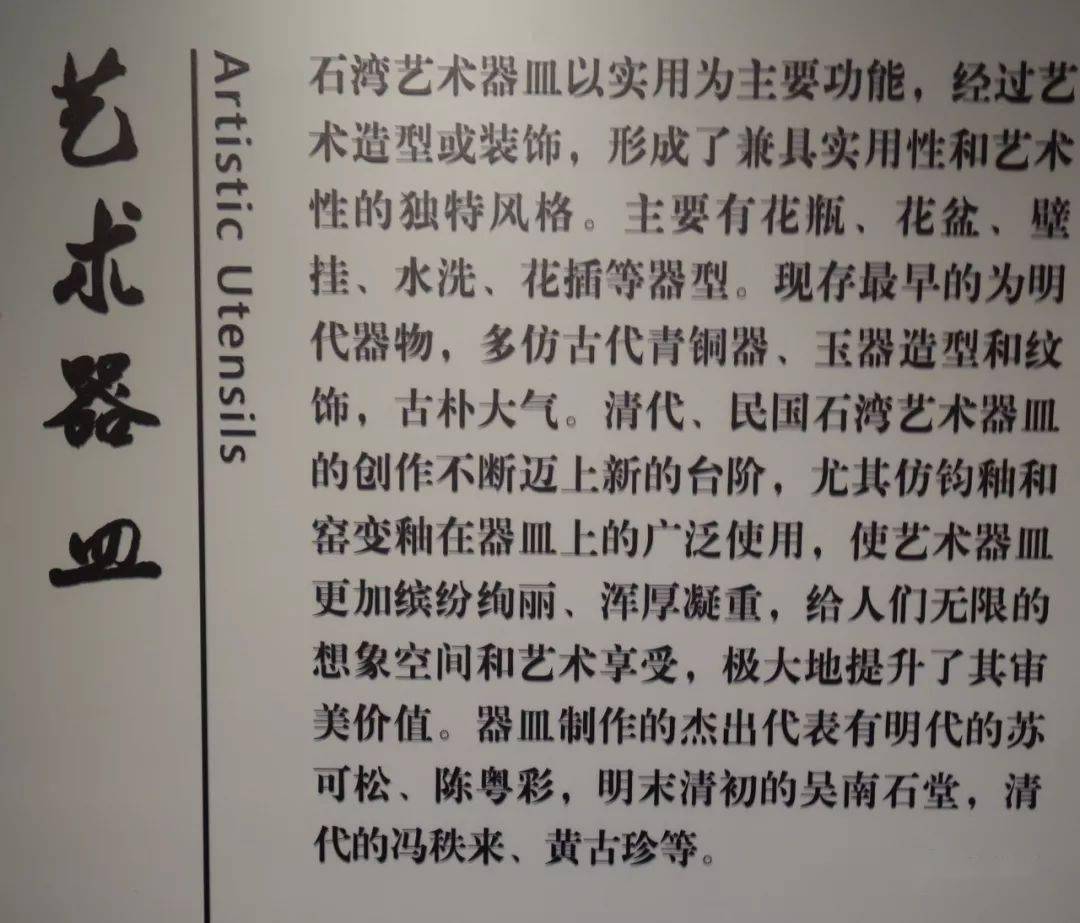 艺术器皿
Artistic Utensils
石湾艺术器皿以实用为主要功能，经过艺
术造型或装饰，形成了兼具实用性和艺术
性的独特风格。主要有花瓶、花盆、壁
挂、水洗、花插等器型。现存最早的为明
代器物，多仿古代青铜器、玉器造型和纹
饰，古朴大气。清代、民国石湾艺术器皿
的创作不断迈上新的台阶，尤其仿钧釉和
窑变釉在器皿上的广泛使用，使艺术器皿
更加缤纷绚丽、浑厚凝重，给人们无限的
想象空间和艺术享受，极大地提升了其审
美价值。器皿制作的杰出代表有明代的苏
可松、陈粤彩，明末清初的吴南石堂，清
代的冯秩来、黄古珍等。